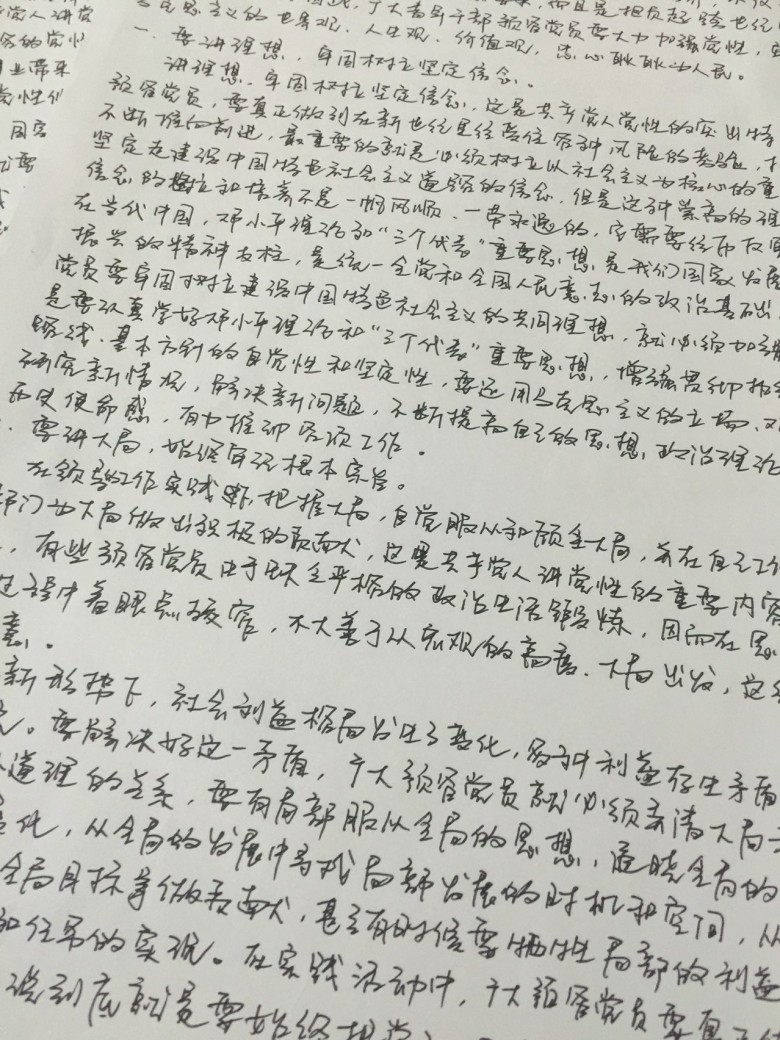 广大党员干部预备党员要大力加强党性
主义的世界观、人生观、价值观,忠心耿耿为人民。
一、要讲理想,牢固树立坚定信念。
讲理想、牢固树立坚定信念,这是共产党人党性的突出特
预备党员,要真正做到在新世纪里经受住各种风险的考验,
不断推向前进,最重要的就是必须树立以社会主义为核心的
坚定走建设中国特色社会主义道路的信念。但是这种崇高的理
信念的树立和培养不是一帆风顺、一蹴而就的,它需要经
在当代中国,邓小平理论和“三个代表”重要思想是我们国家发展
振兴的精神支柱,是统一全党和全国人民意志的政治基础。
党员要牢固树立建设中国特色社会主义的共同理想,就必须加
是要认真学好邓小平理论和“三个代表”重要思想,增强贯彻
路线、基本方针的自觉性和坚定性,要运用马克思主义的立场、
研究新情况,解决新问题,不断提高自己的思想、政治理论
历史使命感,有力推动各项工作。
要讲大局,始终牢记根本宗旨。
在领导工作实践中,把握大局,自觉服从和顾全大局,并在自己工作
部门为大局做出积极的贡献,这是共产党人讲党性的重要内容
有些预备党员由于缺乏严格的政治生活锻炼,因而在思
过程中着眼点较窄,不大善于从宏观的高度、大局出发,这
意。
新形势下,社会利益格局发生了变化,各种利益存在矛盾
要解决好这一矛盾,广大预备党员就必须弄清大局
道理的关系,要有局部服从全局的思想,通晓全局的
化,从全局的发展中寻找局部发展的时机和空间,从
全局目标多做贡献,甚至有时候要牺牲局部的利益
和任务的实现。在实践活动中,广大预备党员要真正
说到底就是要始终把
党人讲党
的党性
业带来
党性